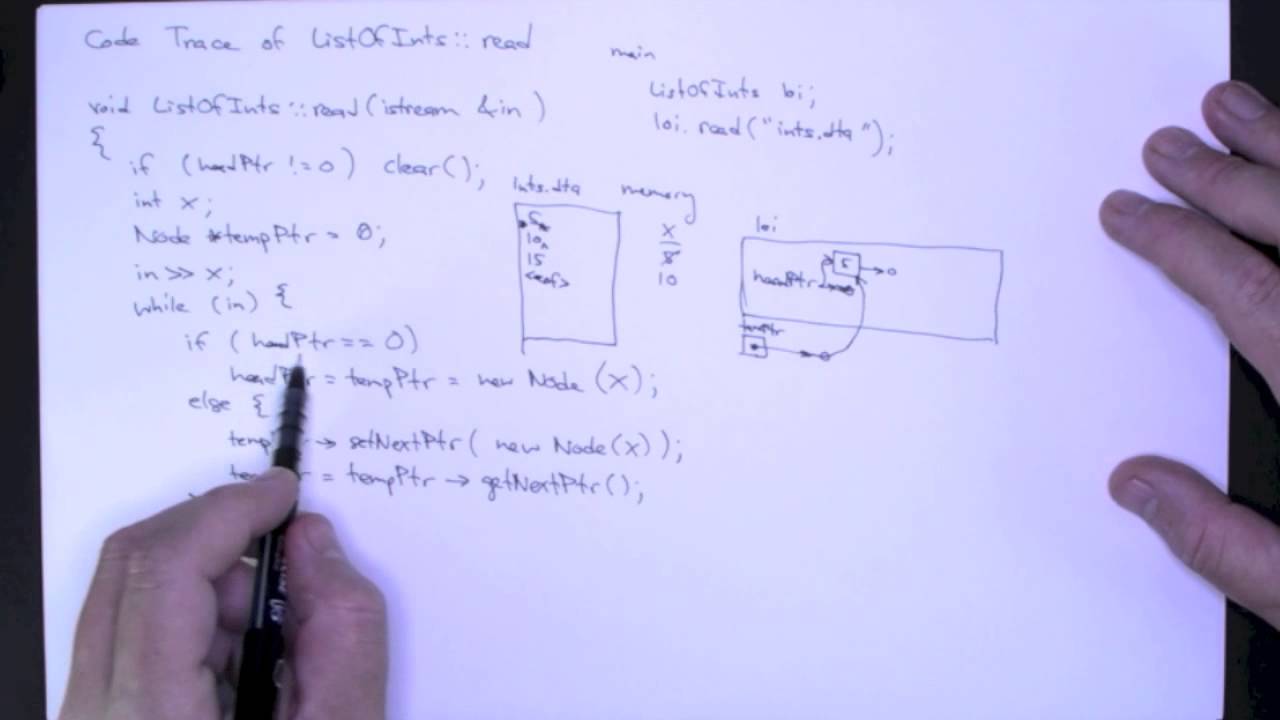 Code Trace of ListOfInts::read
main
ListOfInts loi;
loi.read("ints.dta");
void ListOfInts::read(istream &in)
{
if (headPtr != 0) clear();
int x;
Node *tempPtr = 0;
in >> x;
while (in) {
if (headPtr == 0)
headPtr = tempPtr = new Node (x);
else {
setNextPtr( new Node(x));
= tempPtr → getNextPtr();
ints.dta
5
10
15
<eof>
memory
x
5
10
loi
headPtr
5
0
tempPtr